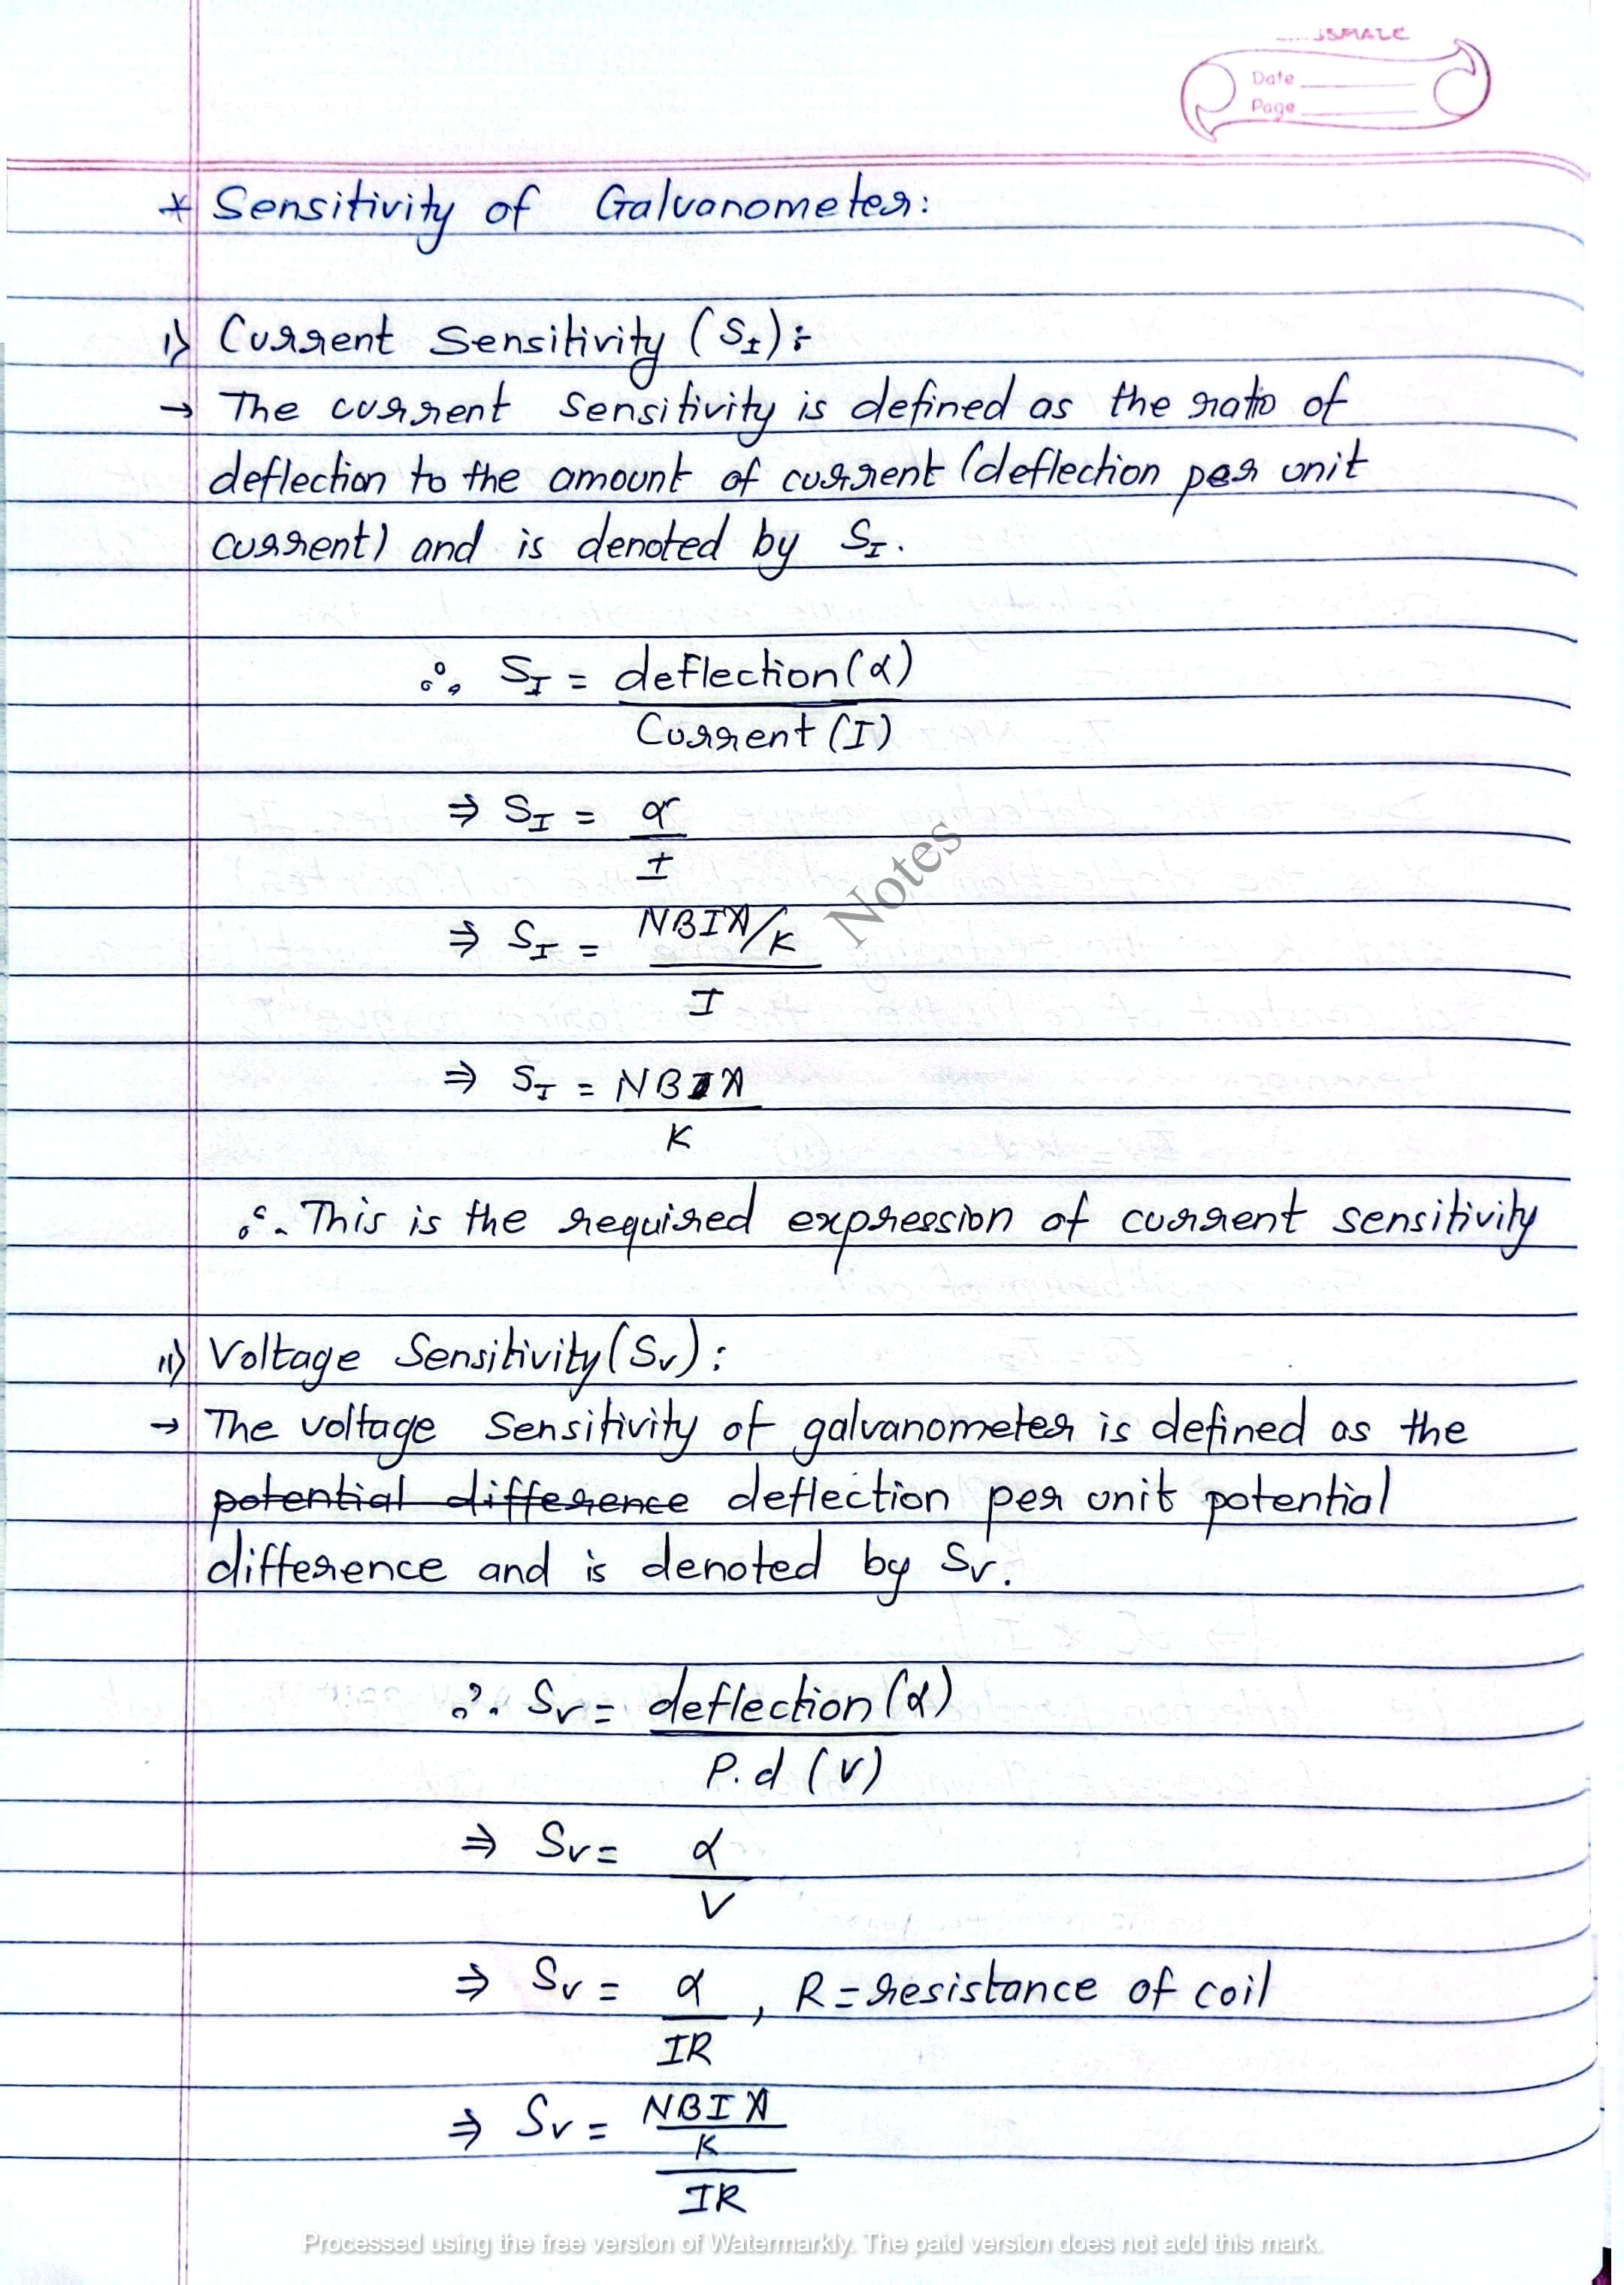 Date
Page
* Sensitivity of Galvanometer:
i) Current Sensitivity (S_I):-
→ The current sensitivity is defined as the ratio of
deflection to the amount of current (deflection per unit
current) and is denoted by S_I.
∴ S_I = deflection(α)
Current (I)
⇒ S_I = α
I
⇒ S_I = NBIA/K
I
⇒ S_I = NBA
K
∴ This is the required expression of current sensitivity
ii) Voltage Sensitivity (Sv):
→ The voltage sensitivity of galvanometer is defined as the
potential difference deflection per unit potential
difference and is denoted by Sv.
∴ Sv = deflection (α)
P.d (V)
⇒ Sv = α
V
⇒ Sv = α , R = resistance of coil
IR
⇒ Sv = NBIA
K
IR
Notes
Processed using the free version of Watermarkly. The paid version does not add this mark.